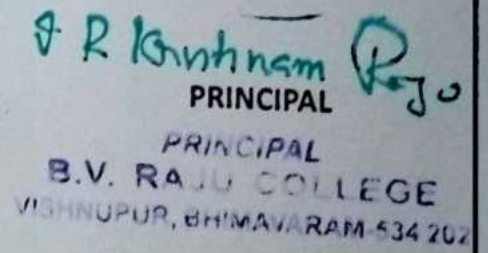 I R Krishnam Raju
PRINCIPAL
PRINCIPAL
B.V. RAJU COLLEGE
VISHNUPUR, BHIMAVARAM-534 202